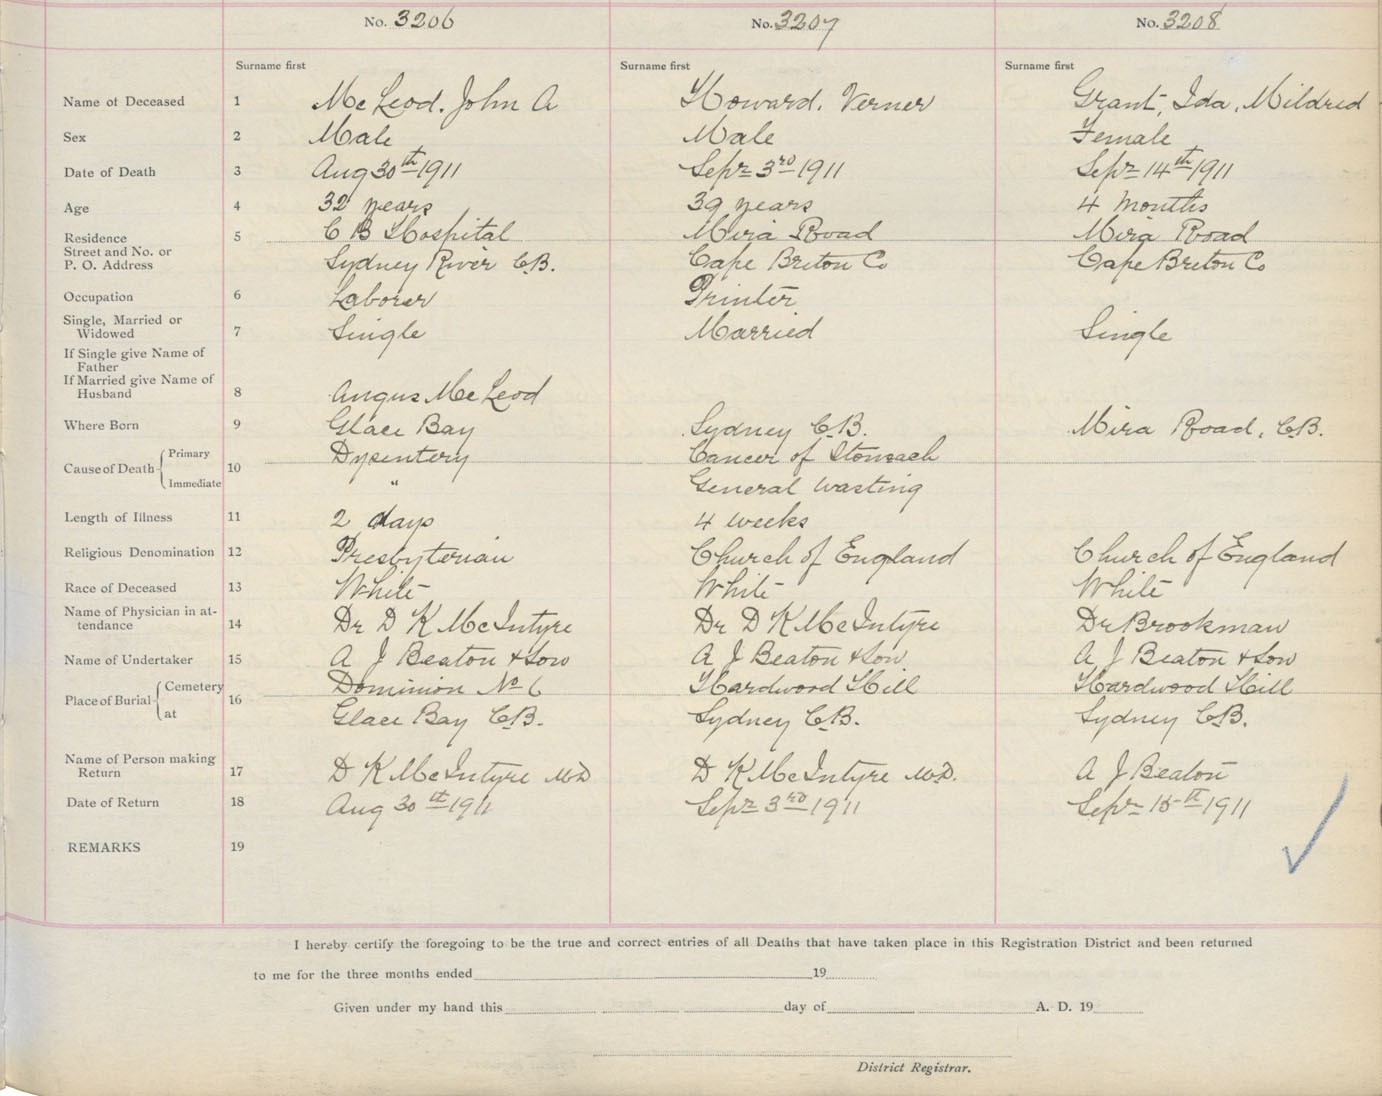 No. 3206 No. 3207 No. 3208
Surname first Surname first Surname first
Name of Deceased 1 McLeod, John A Howard, Verner Grant, Ida, Mildred
Sex 2 Male Male Female
Date of Death 3 Aug 30th 1911 Sepr 3rd 1911 Sepr 14th 1911
Age 4 32 years 39 years 4 months
Residence 5 C B Hospital Mira Road Mira Road
Street and No. or
P. O. Address Sydney River C.B. Cape Breton Co Cape Breton Co
Occupation 6 Laborer Printer
Single, Married or
Widowed 7 Single Married Single
If Single give Name of
Father
If Married give Name of
Husband 8 Angus McLeod
Where Born 9 Glace Bay Sydney C.B. Mira Road, C.B.
Cause of Death Primary 10 Dysentery Cancer of Stomach
Immediate " General wasting
Length of Illness 11 2 days 4 weeks
Religious Denomination 12 Presbyterian Church of England Church of England
Race of Deceased 13 White White White
Name of Physician in at-
tendance 14 Dr D K McIntyre Dr D K McIntyre Dr Brookman
Name of Undertaker 15 A J Beaton & Son A J Beaton & Son A J Beaton & Son
Place of Burial Cemetery 16 Dominion No 6 Hardwood Hill Hardwood Hill
at Glace Bay C.B. Sydney C.B. Sydney C.B.
Name of Person making
Return 17 D K McIntyre M.D D K McIntyre M.D. A J Beaton
Date of Return 18 Aug 30th 1911 Sepr 3rd 1911 Sepr 15th 1911
REMARKS 19
I hereby certify the foregoing to be the true and correct entries of all Deaths that have taken place in this Registration District and been returned
to me for the three months ended 19
Given under my hand this day of A. D. 19
District Registrar.